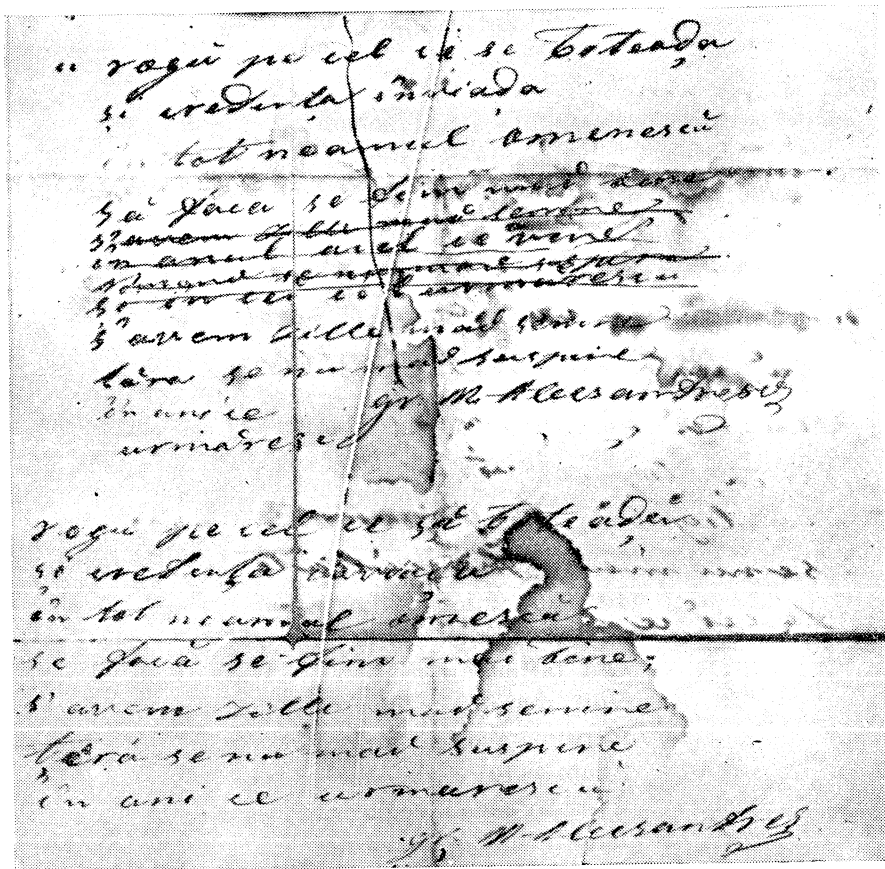 " rogŭ pe cel ce se Boteaḑa
și credența înviada
în tot neamul omenescŭ
să faca se fim maĭ bine
s'avem zille maĭ senine
în anul acel ce vine
se nu maĭ suspine
s'avem zille maĭ senine
țéra se nu maĭ suspine
în ani ce gr. M. Alecsandrescu
urmarescŭ
rogŭ pe cel ce să Boteaḑă
și credența
în tot neamul omescŭ
se facă se fim maĭ bine;
s'avem zille maĭ senine
țéră se nu maĭ suspine
în ani ce urmarescŭ
gr. M. Alecsandres